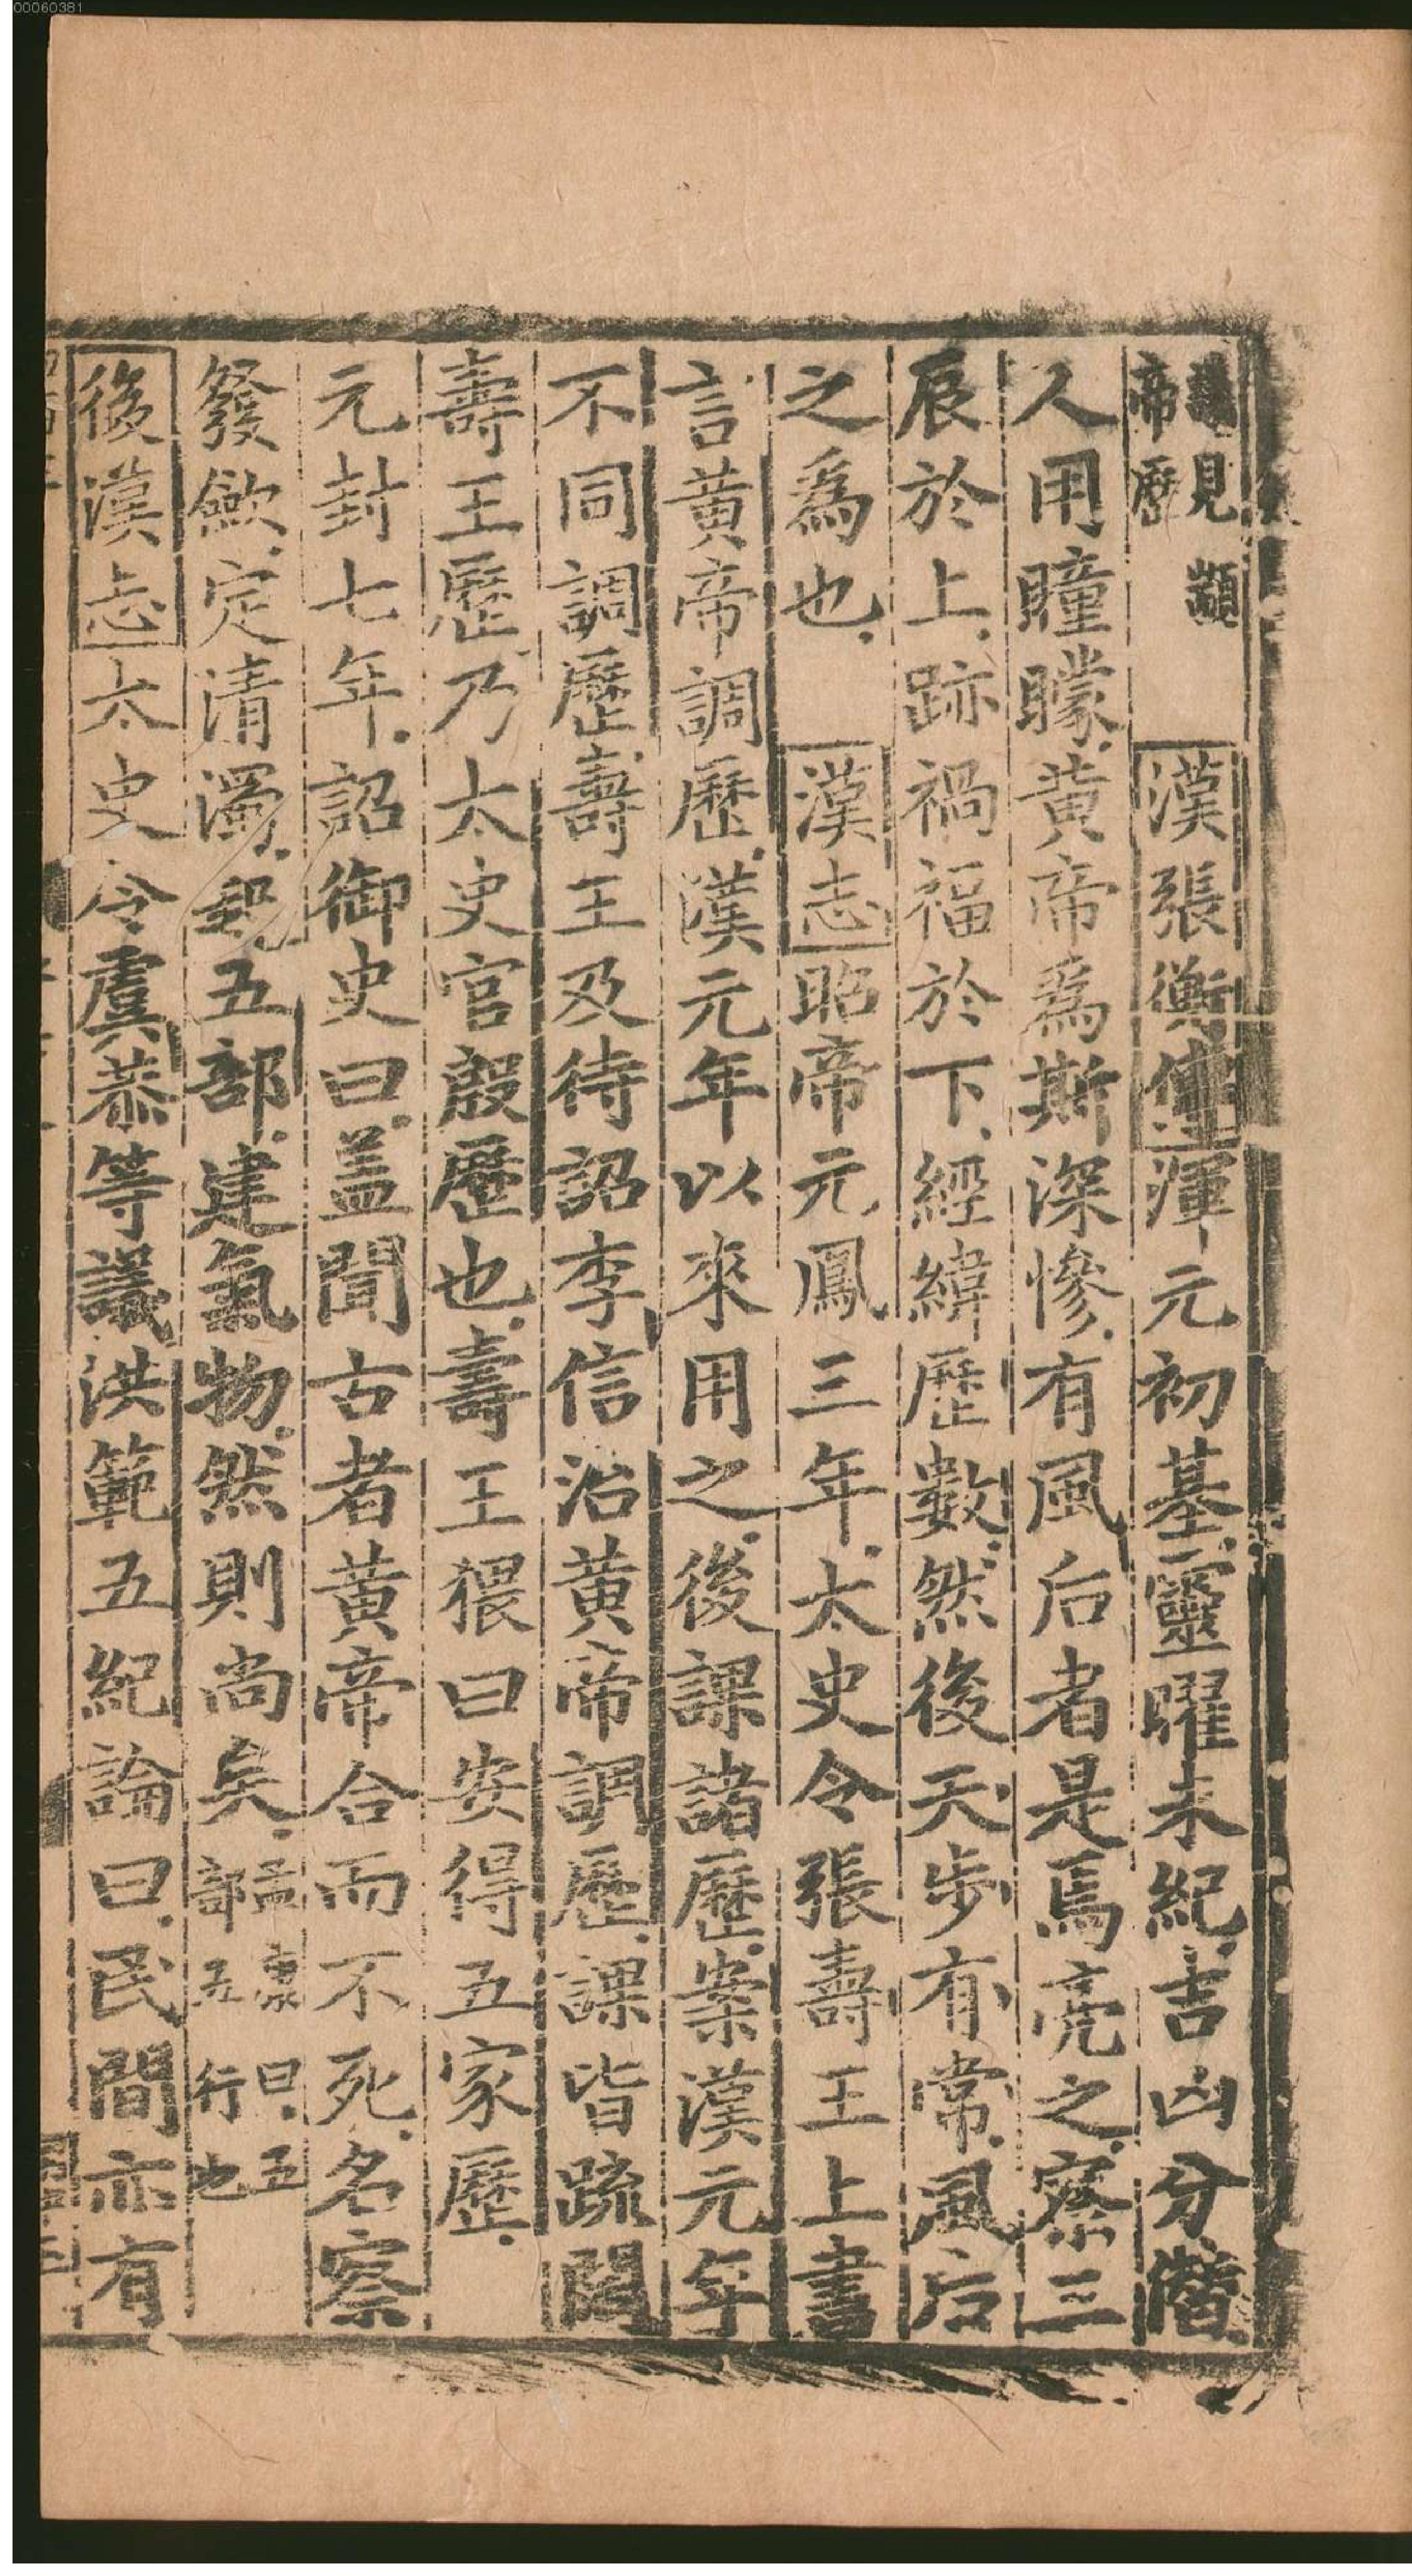 00060381
議見顓帝曆 漢張衡傳渾元初基靈曜未紀吉凶分僭
人用瞳矇黃帝爲斯深慘有風后者是焉亮之察三
辰於上跡禍福於下經緯歷數然後天步有常風后
之爲也 漢志昭帝元鳳三年太史令張壽王上書
言黃帝調歷漢元年以來用之後課諸歷案漢元年
不同調歷壽王及待詔李信治黃帝調歷課皆疏闊
壽王歷乃太史官殷歷也壽王猥曰安得五家歷
元封七年詔御史曰盖聞古者黃帝合而不死名察
發歛定清濁起五部建氣物然則尚矣孟康曰五部五行也
後漢志太史令虞恭等議洪範五紀論曰民間亦有